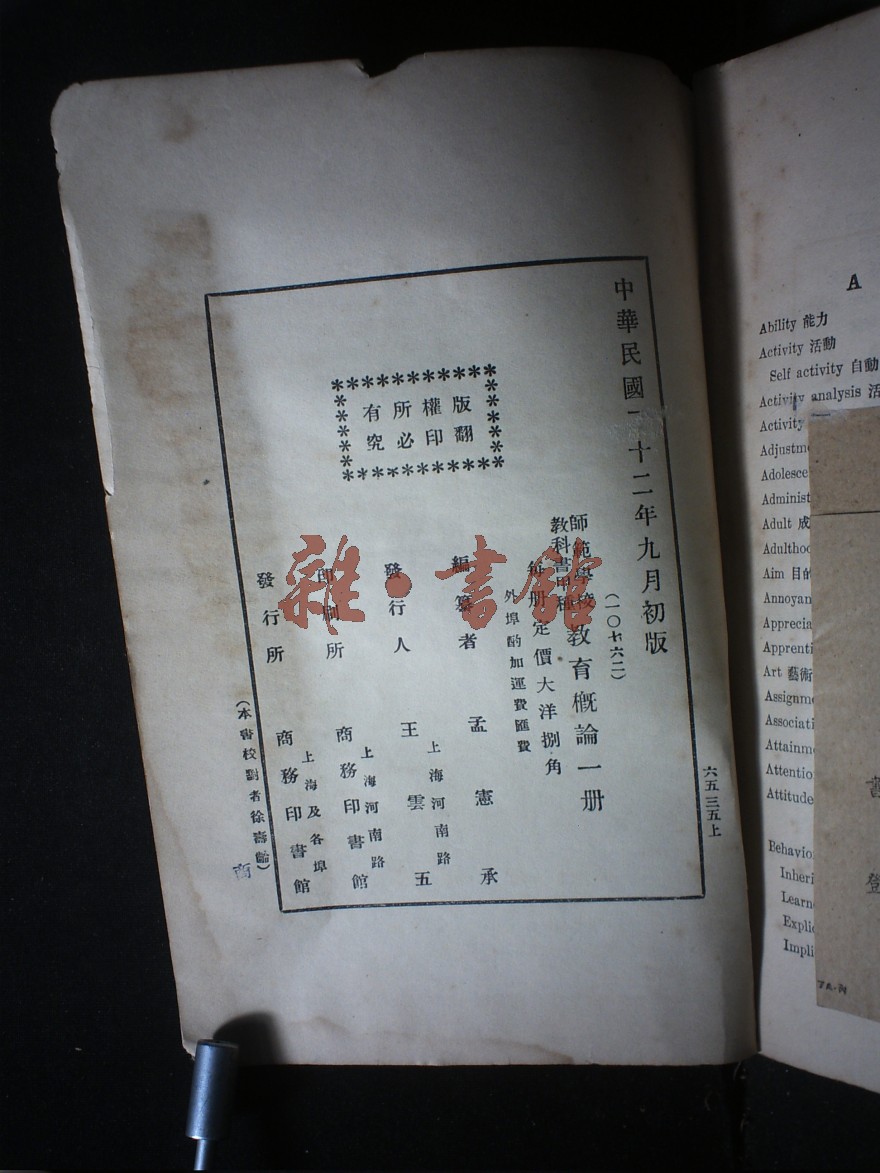 中華民國二十二年九月初版
(一〇七六二)
師範學校
教科書甲種
教育概論一册
每册定價大洋捌角
外埠酌加運費匯費
版權所有
翻印必究
編纂者 孟憲承
發行人 王雲五
上海河南路
印刷所 商務印書館
上海河南路
發行所 商務印書館
上海及各埠
(本書校對者徐壽齡)
商
六五三五上
雜·書館
A
Ability 能力
Activity 活動
Self activity 自動
Activity analysis 活
Activity
Adjustme
Adolesce
Administ
Adult 成
Adulthoo
Aim 目的
Annoyan
Apprecia
Apprenti
Art 藝術
Assignme
Associati
Attainme
Attentio
Attitude
Behavio
Inheri
Learne
Explic
Impli